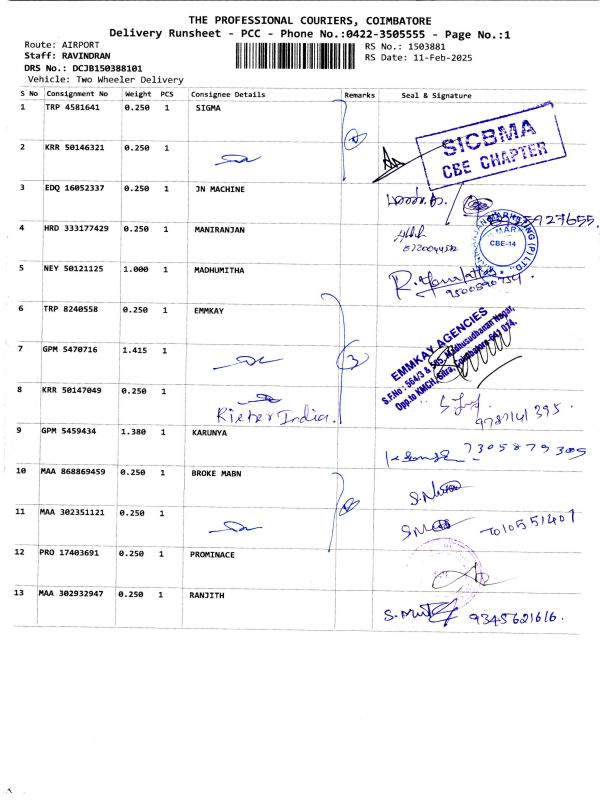 THE PROFESSIONAL COURIERS, COIMBATORE
Delivery Runsheet - PCC - Phone No.:0422-3505555 - Page No.:1
Route: AIRPORT
RS No.: 1503881
Staff: RAVINDRAN
RS Date: 11-Feb-2025
DRS No.: DCJB150388101
Vehicle: Two Wheeler Delivery
S No Consignment No Weight PCS Consignee Details Remarks Seal & Signature
1 TRP 4581641 0.250 1 SIGMA
SICBMA
CBE CHAPTER
2 KRR 50146321 0.250 1
3 EDQ 16052337 0.250 1 JN MACHINE
4 HRD 333177429 0.250 1 MANIRANJAN
CBE-14
5 NEY 50121125 1.000 1 MADHUMITHA
6 TRP 8240558 0.250 1 EMMKAY
EMMKAY AGENCIES
S.F.No : 564/3 & 565, Madhusudhanan Nagar,
Opp.to KMCH, Sitra, Coimbatore-641 014.
7 GPM 5470716 1.415 1
3
8 KRR 50147049 0.250 1
Rieter India.
9787141395
9 GPM 5459434 1.380 1 KARUNYA
7305879305
10 MAA 868869459 0.250 1 BROKE MABN
11 MAA 302351121 0.250 1
7010551407
12 PRO 17403691 0.250 1 PROMINACE
13 MAA 302932947 0.250 1 RANJITH
9345621616.